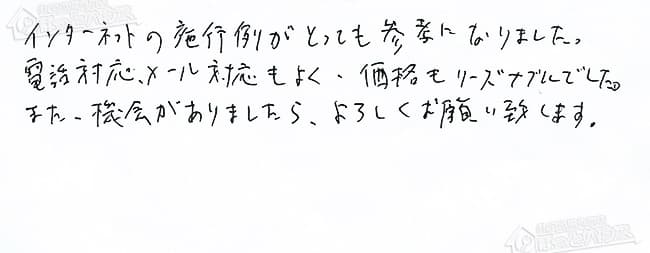 インターネットの施行例がとっても参考になりました。
電話対応、メール対応もよく、価格もリーズナブルでした。
また、機会がありましたら、よろしくお願い致します。